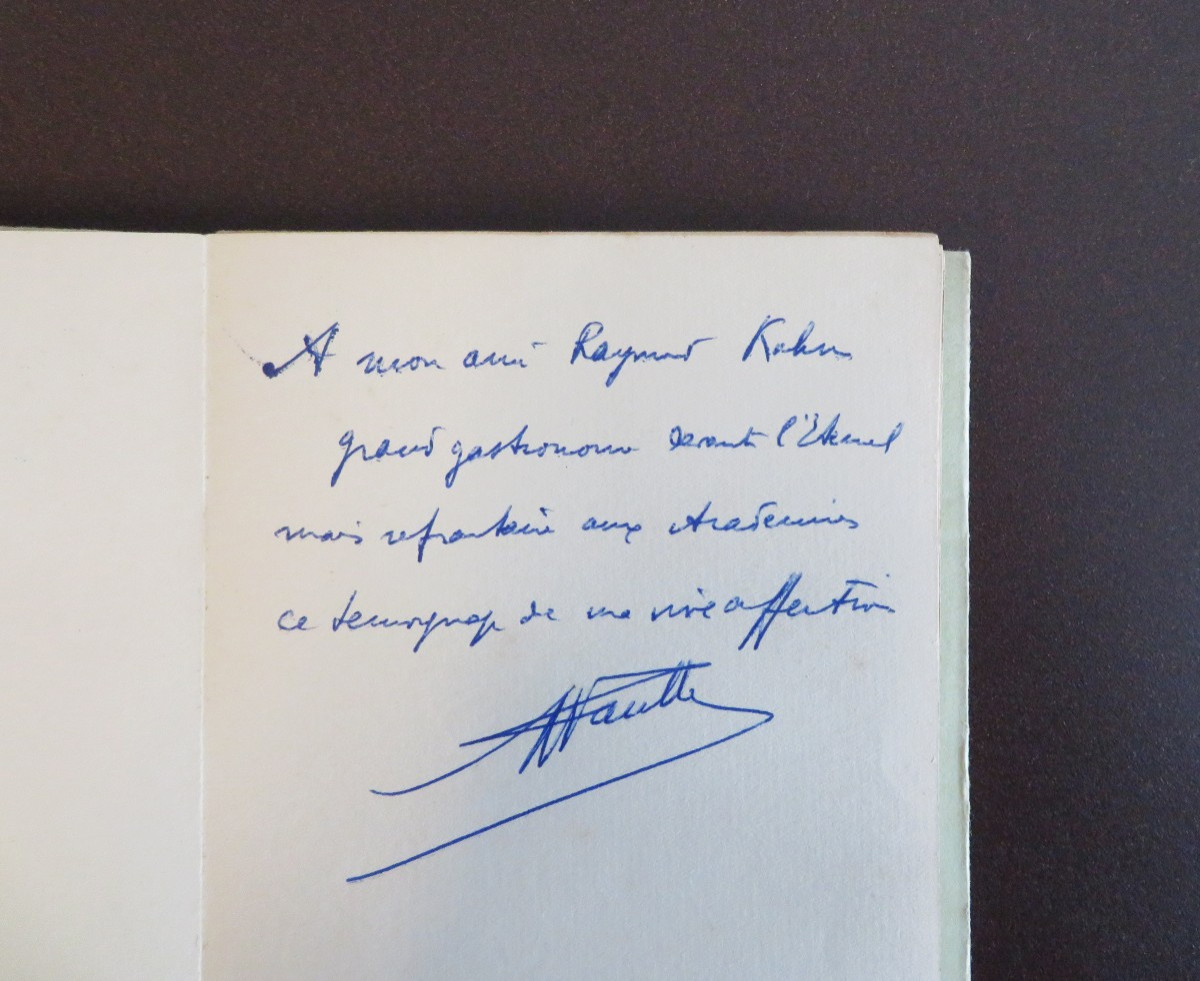 A mon ami Raymond Kahn
grand gastronome devant l'Eternel
mais refractaire aux Academies
ce temoignage de ma vive affection